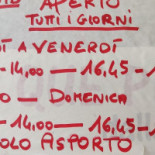 APERTO
TUTTI I GIORNI
Ì A VENERDÌ
-14,00 — 16,45-1
O — DOMENICA
-14,00 — 16,45-
OLO ASPORTO